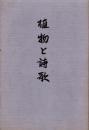 植物と詩歌